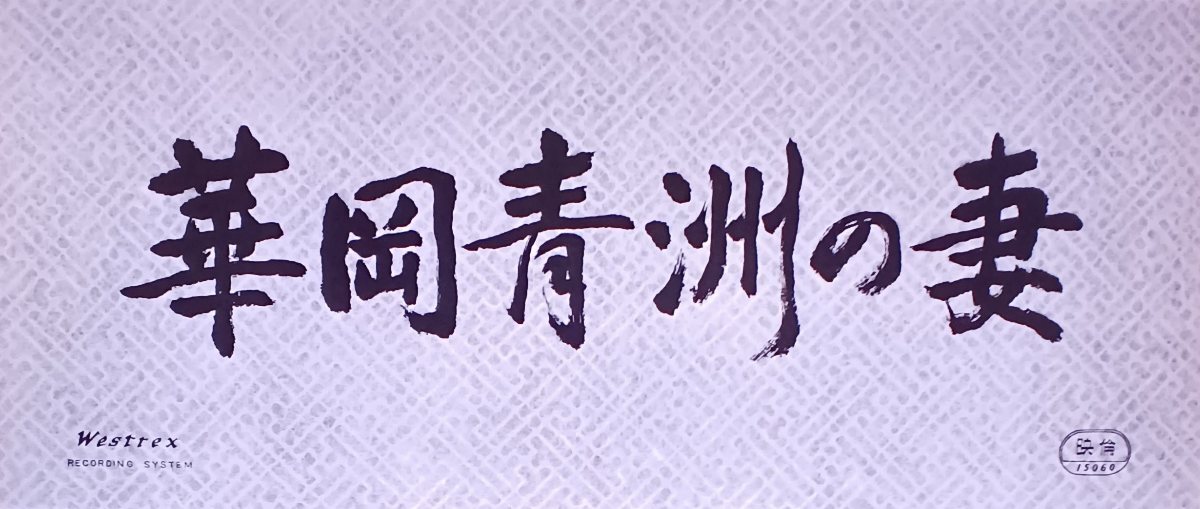 華岡青洲の妻
Westrex
RECORDING SYSTEM
映倫
15060